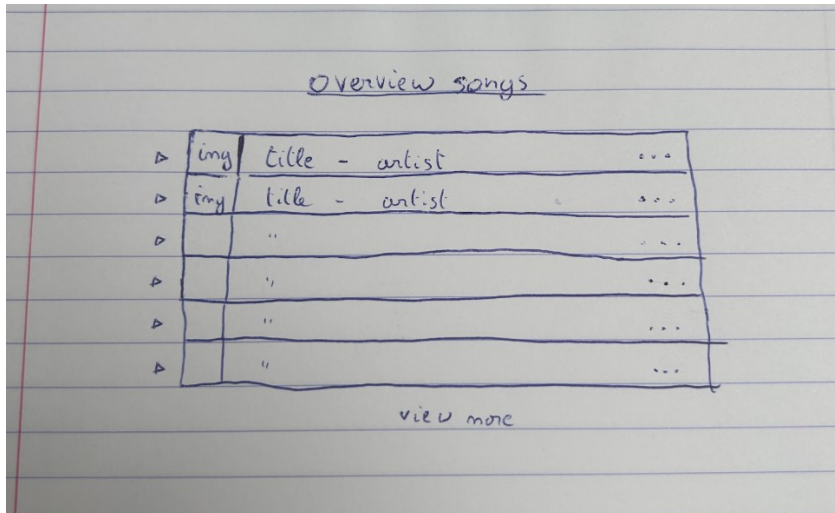 Overview songs
img title - artist ...
img title - artist ...
" ...
" ...
" ...
" ...
view more